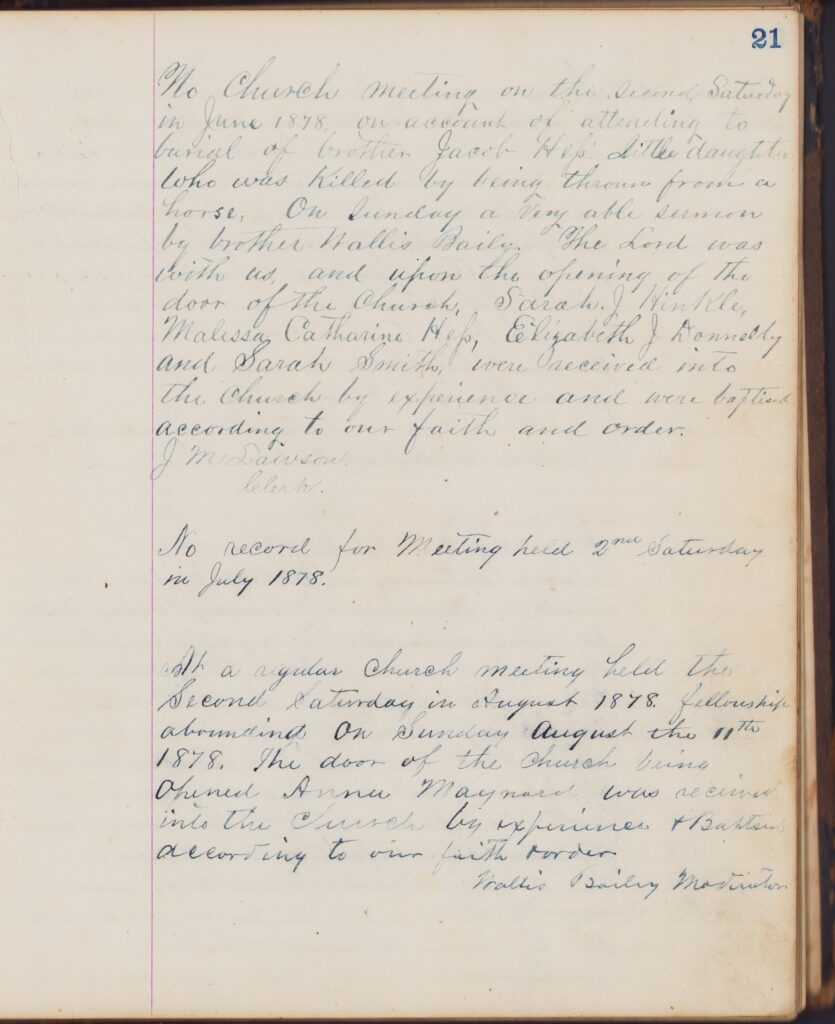 21
No Church meeting on the second Saturday
in June 1878, on account of attending to
burial of brother Jacob Hess' Little daughter
who was Killed by being thrown from a
horse. On Sunday a Very able sermon
by brother Wallis Baily. The Lord was
with us, and upon the opening of the
door of the Church, Sarah. J Hinkle,
Malissa Catharine Hess, Elizabeth J Donnelly
and Sarah Smith, were received into
the Church by experience and were baptised
according to our faith and order.
J M Lawson.
Clerk.
No record for Meeting held 2nd Saturday
in July 1878.
At a regular Church meeting held the
Second Saturday in August 1878. fellowship
abounding On Sunday August the 11th
1878. The door of the Church being
Opened Anna Maynard was received
into the Church by experience & Baptised
according to our faith & order
Wallis Bailey Moderator